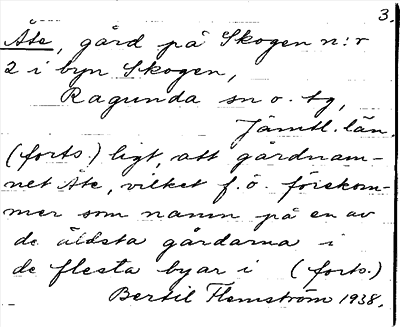 3.
Åte, gård på Skogen n:r
2 i byn Skogen,
Ragunda sn o. tg,
Jämtl. län.
(forts.) ligt, att gårdnam-
net Åte, vilket f.ö. förekom-
mer som namn på en av
de äldsta gårdarna i
de flesta byar i (forts.)
Bertil Flemström 1938.